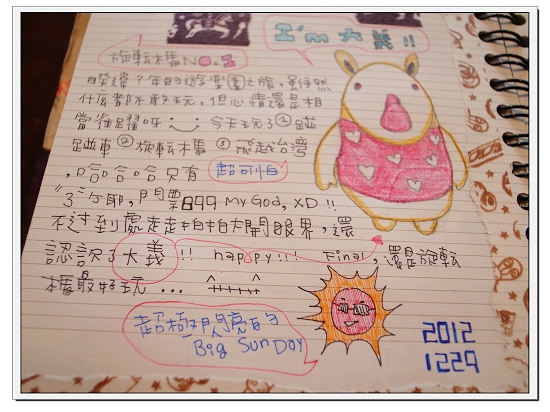 I'm 大義!!
旋転木馬NO.1
睽違7年的遊樂園之旅,雖然
什么都不敢玩,但心情還是相
當雀躍呀 今天玩了①踫
踫車②旋転木馬③飛越台灣
,哈哈哈只有 超可怕
"3"分耶,門票899 My God, XD!!
不过到處走走拍拍大開眼界,還
認識了大義!! happy!!! Final,還是旋転
木馬最好玩...
超極閃亮的
Big Sun Day
2012
1229